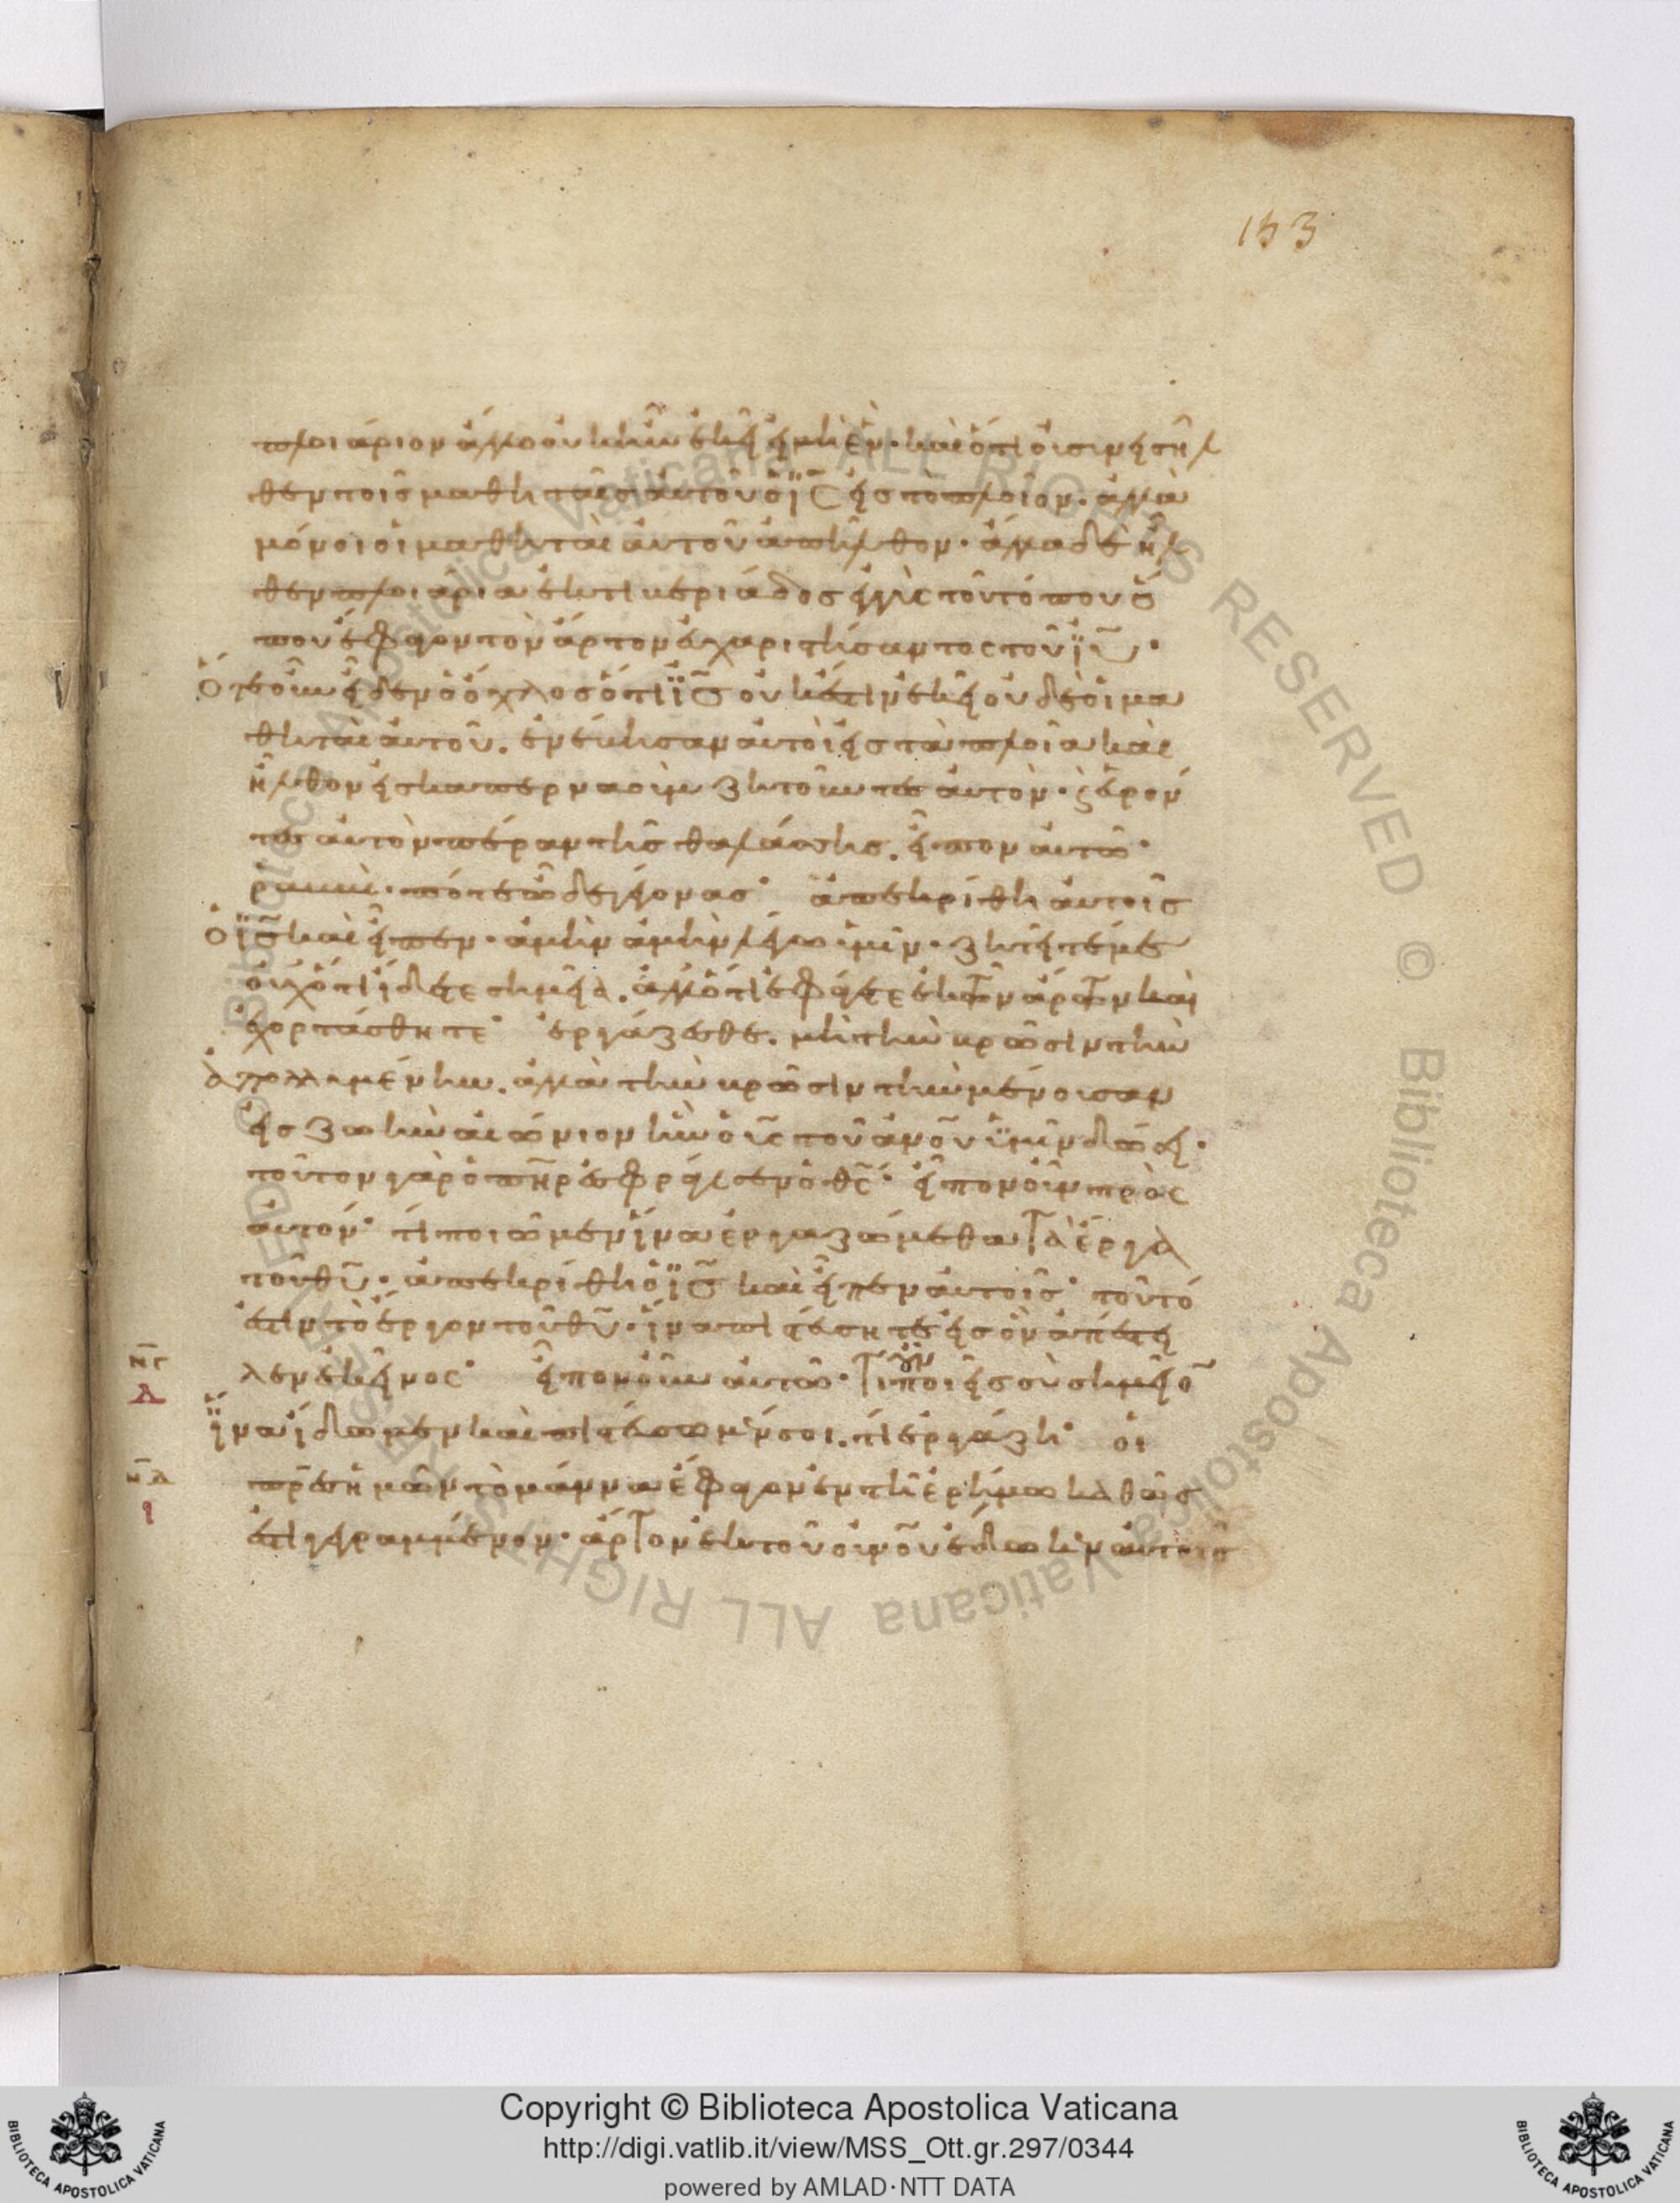 153
πλοιάριον ἄλλο οὐκ ἦν ἐκεῖ εἰ μὴ ἕν· καὶ ὅτι οὐ συνεισῆλ
θεν τοῖς μαθηταῖς αὐτοῦ ὁ ῙC εἰς τὸ πλοῖον· ἀλλὰ
μόνοι οἱ μαθηταὶ αὐτοῦ ἀπῆλθον· ἄλλα δὲ ἦλ
θεν πλοιάρια ἐκ τιβεριάδος ἐγγὺς τοῦ τόπου ὅ
που ἔφαγον τὸν ἄρτον εὐχαριστήσαντος τοῦ ῑῡ·
ὅτε οὖν εἶδεν ὁ ὄχλος ὅτι ῑς̄ οὐκ ἔστιν ἐκεῖ οὐδὲ οἱ μα
θηταὶ αὐτοῦ. ἐνέβησαν αὐτοὶ εἰς τὰ πλοῖα καὶ
ἦλθον εἰς καπερναοὺμ ζητοῦντες αὐτόν· εὑρόν
τες αὐτὸν πέραν τῆς θαλάσσης. εἶπον αὐτῶ·
ῥαββὶ· πότε ὧδε γέγονας· ἀπεκρίθη αὐτοῖς
ὁ ῑς̄ καὶ εἶπεν· ἀμὴν ἀμὴν λέγω ὑμῖν· ζητεῖτέ με
οὐχ ὅτι ἴδετε σημεῖα. ἀλλ' ὅτι ἐφάγετε ἐκ τῶν ἄρτων καὶ
ἐχορτάσθητε· ἐργάζεσθε. μὴ τὴν βρῶσιν τὴν
ἀπολλυμένην. ἀλλὰ τὴν βρῶσιν τὴν μένουσαν
εἰς ζωὴν αἰώνιον ἣν ὁ ῡς̄ τοῦ ἀν̄ου ὑμῖν δώσει·
τοῦτον γὰρ ὁ πη̄ρ ἐσφράγισεν ὁ θς̄· εἶπον οὖν πρὸς
αὐτόν· τί ποιῶμεν ἵνα ἐργαζώμεθα τὰ ἔργα
τοῦ θῡ· ἀπεκρίθη ὁ ῑς̄ καὶ εἶπεν αὐτοῖς· τοῦτό
ἐστιν τὸ ἔργον τοῦ θῡ· ἵνα πιστεύσητε εἰς ὃν ἀπέστει
λεν ἐκεῖνος· εἶπον οὖν αὐτῶ· τί οὖν ποιεῖς σὺ σημεῖο̄
ἵνα ἴδωμεν καὶ πιστεύσωμέν σοι. τί ἐργάζη· οἱ
πρ̄ες ἡμῶν τὸ μάννα ἔφαγον ἐν τῆ ἐρήμω καθώς
ἐστι γεγραμμένον· ἄρτον ἐκ τοῦ οὐνοῦ ἔδωκεν αὐτοῖς
ΝΓ
Δ
ΝΔ
Ι
Copyright © Biblioteca Apostolica Vaticana
http://digi.vatlib.it/view/MSS_Ott.gr.297/0344
powered by AMLAD·NTT DATA
BIBLIOTECA APOSTOLICA VATICANA
BIBLIOTECA APOSTOLICA VATICANA